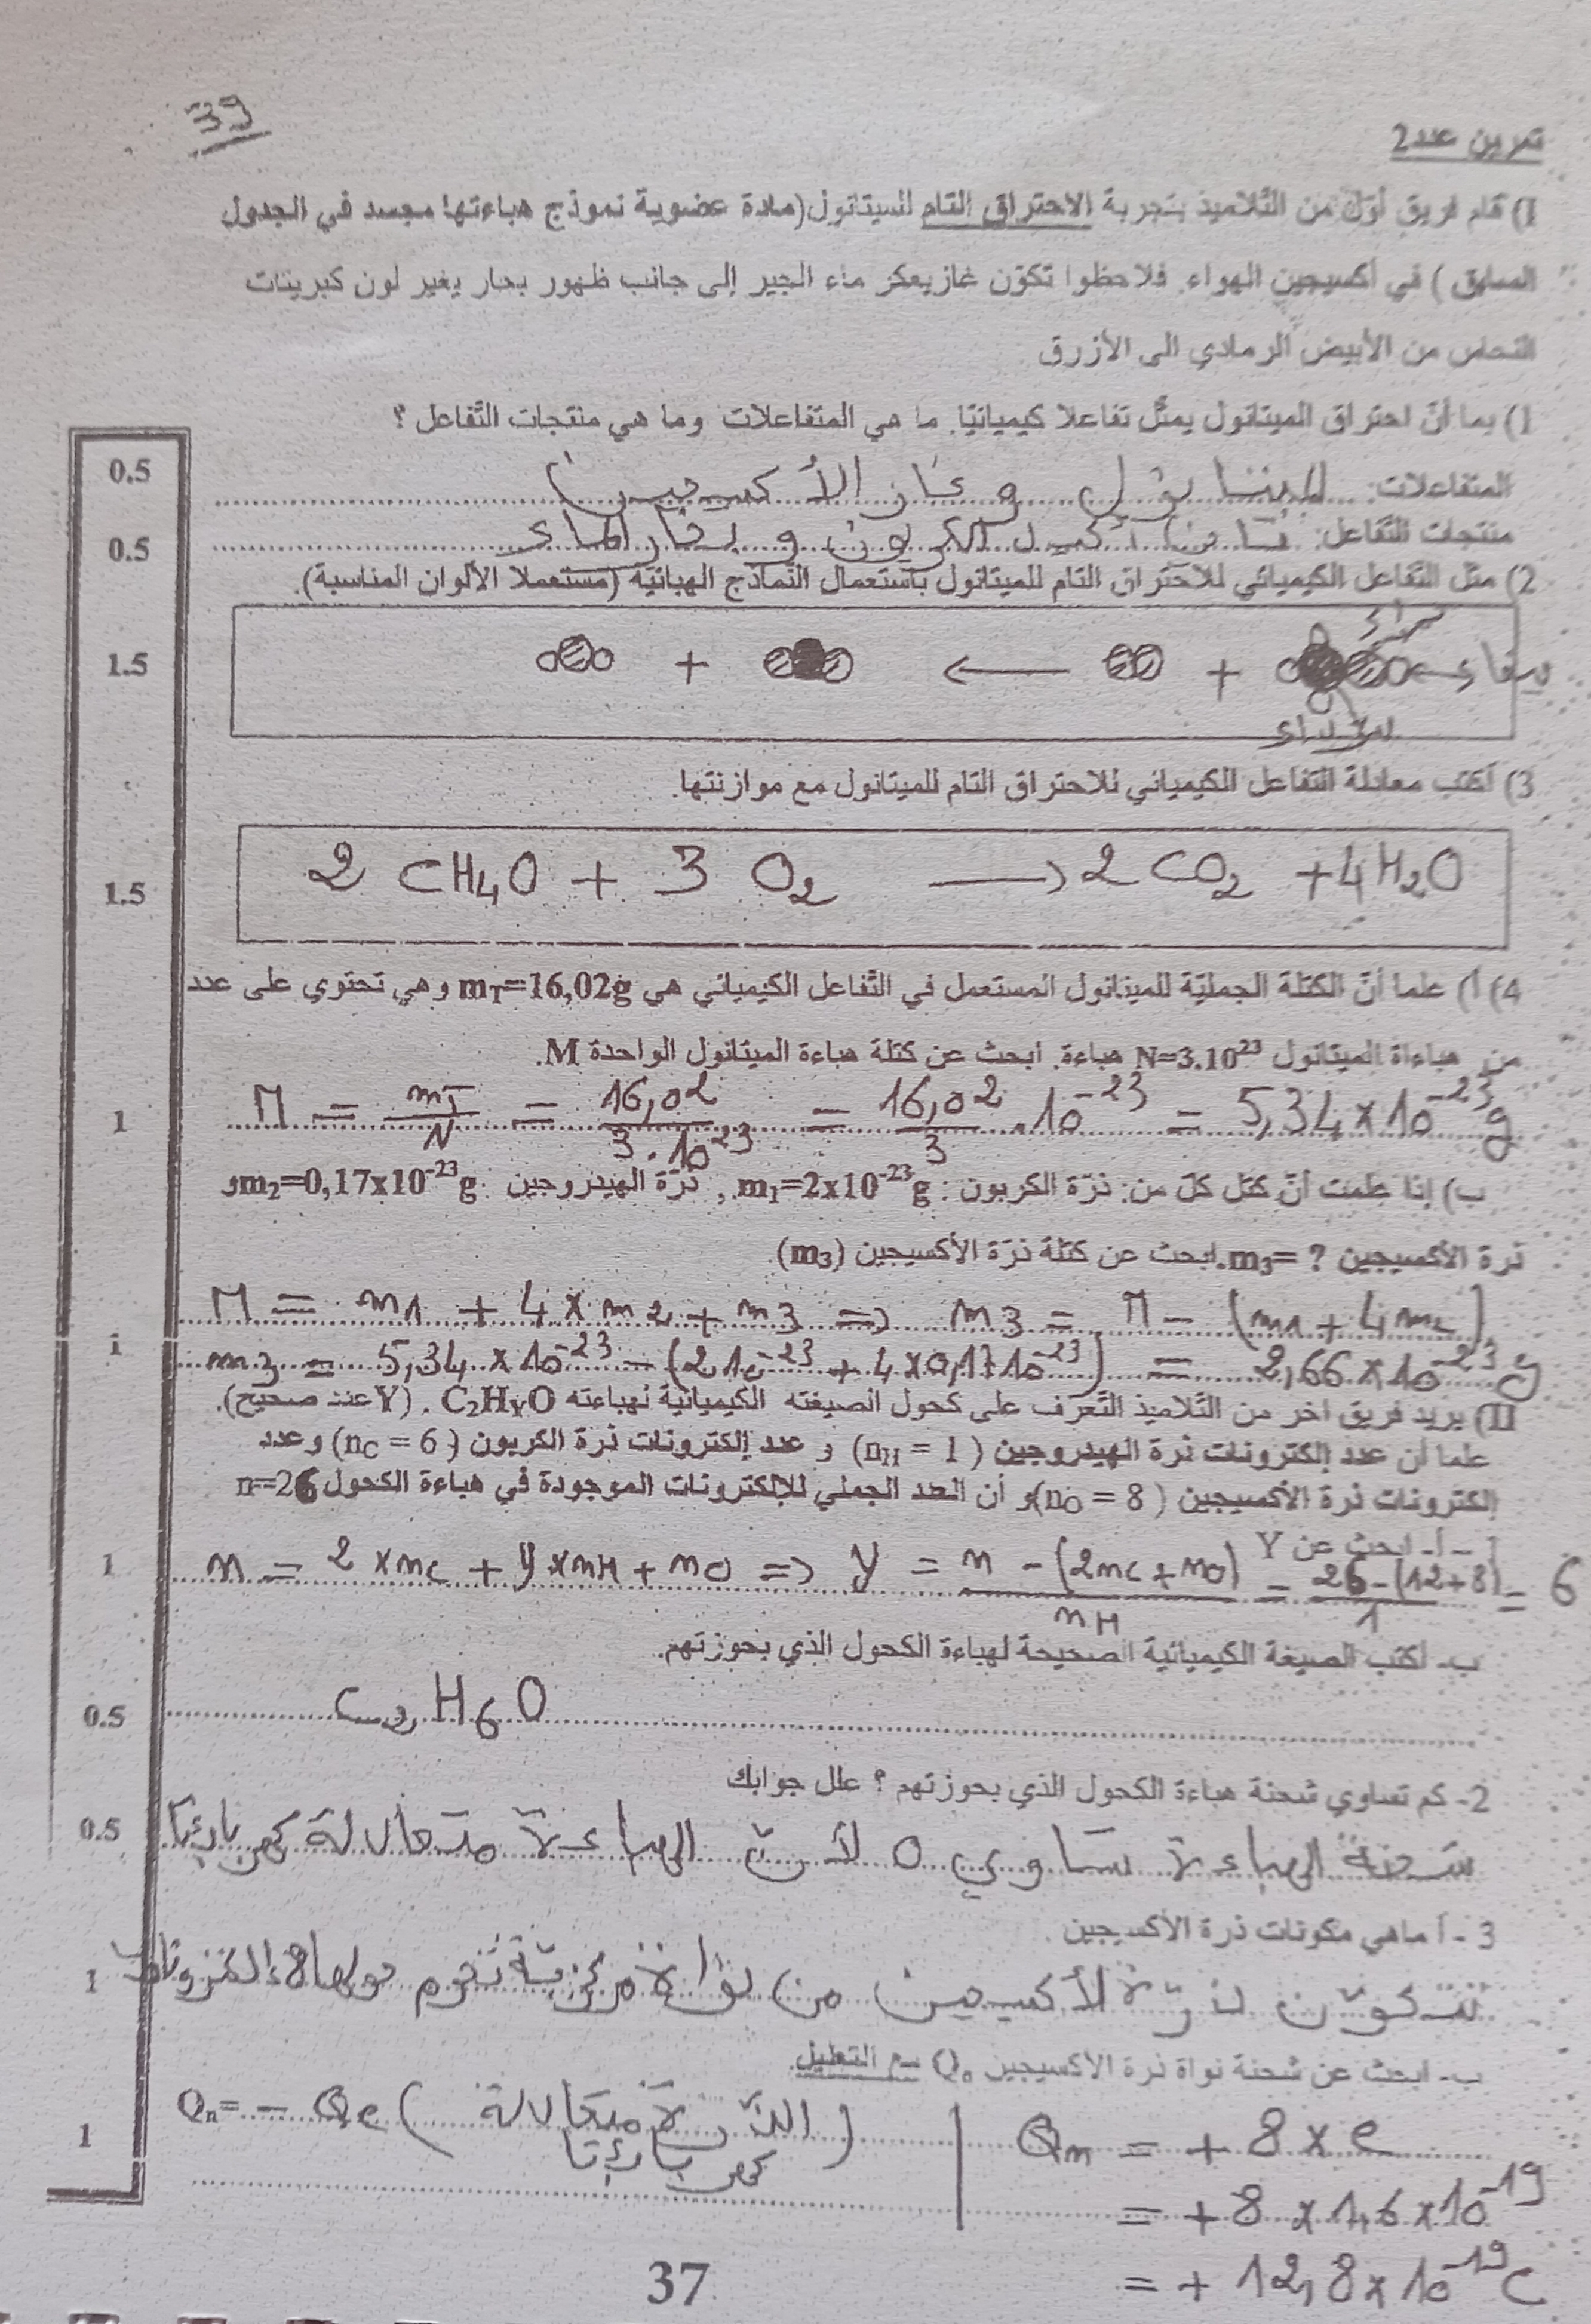 39
تمرين عدد2
I) قام فريق أوّل من التّلاميذ بتجربة الاحتراق التام للميتانول(مادة عضوية نموذج هباءتها مجسد في الجدول
السابق ) في أكسيجين الهواء. فلاحظوا تكوّن غاز يعكر ماء الجير إلى جانب ظهور بخار يغير لون كبريتات
النحاس من الأبيض الرمادي الى الأزرق
1) بما أنّ احتراق الميتانول يمثّل تفاعلا كيميائيّا. ما هي المتفاعلات وما هي منتجات التّفاعل ؟
0.5
المتفاعلات: الميتانول و غاز الأكسيجين
0.5
منتجات التّفاعل: ثاني أكسيد الكربون و بخار الماء
2) مثّل التّفاعل الكيميائي للاحتراق التام للميتانول باستعمال النّماذج الهبائيّة (مستعملا الألوان المناسبة).
1.5
+ ← +
حمراء
بيضاء
سوداء
3) أكتب معادلة التفاعل الكيميائي للاحتراق التام للميتانول مع موازنتها.
1.5
2 CH4O + 3 O2 → 2 CO2 + 4 H2O
4) أ) علما أنّ الكتلة الجمليّة للميتانول المستعمل في التّفاعل الكيميائي هي mT=16,02g وهي تحتوي على عدد
من هباءاة الميتانول N=3.10²³ هباءة. ابحث عن كتلة هباءة الميتانول الواحدة M.
1
M = mT/N = 16,02/3.10²³ = 16,02/3 .10⁻²³ = 5,34 x 10⁻²³ g
ب) إذا علمت أنّ كتل كلّ من: ذرّة الكربون : m1=2x10⁻²³g , ذرّة الهيدروجين : m2=0,17x10⁻²³g و
ذرة الأكسيجين m3= ?.ابحث عن كتلة ذرّة الأكسيجين (m3).
1
M = m1 + 4 x m2 + m3 => m3 = M - (m1 + 4m2)
m3 = 5,34 x 10⁻²³ - (2 10⁻²³ + 4 x 0,17 10⁻²³) = 2,66 x 10⁻²³ g
II) يريد فريق آخر من التّلاميذ التّعرّف على كحول الصيغته الكيميائية لهباءته C2HYO . (Y عدد صحيح).
علما أن عدد إلكترونات ذرة الهيدروجين (nH = 1) و عدد إلكترونات ذرة الكربون (nC = 6) وعدد
إلكترونات ذرة الأكسيجين (nO = 8)و أن العدد الجملي للإلكترونات الموجودة في هباءة الكحول n=26
1 – أ- ابحث عن Y
1
n = 2 x nC + y x nH + nO => y = n - (2nC + nO)/nH = 26 - (12+8)/1 = 6
ب- أكتب الصيغة الكيميائية الصحيحة لهباءة الكحول الذي بحوزتهم.
0.5
C2H6O
2- كم تساوي شحنة هباءة الكحول الذي بحوزتهم ؟ علل جوابك
0.5
شحنة الهباءة تساوي 0 لأنّ الهباءة متعادلة كهربائيّا
3 - أ ماهي مكونات ذرة الأكسيجين .
1
تتكوّن ذرّة الأكسيجين من نواة مركزيّة تحوم حولها 8 إلكترونات
ب- ابحث عن شحنة نواة ذرة الأكسيجين Qn مع التعليل.
1
Qn= - Qe (الذّرة متعادلة كهربائيّا)
Qn = + 8 x e
= + 8 x 1,6 x 10⁻¹⁹
= + 12,8 x 10⁻¹⁹ C
37